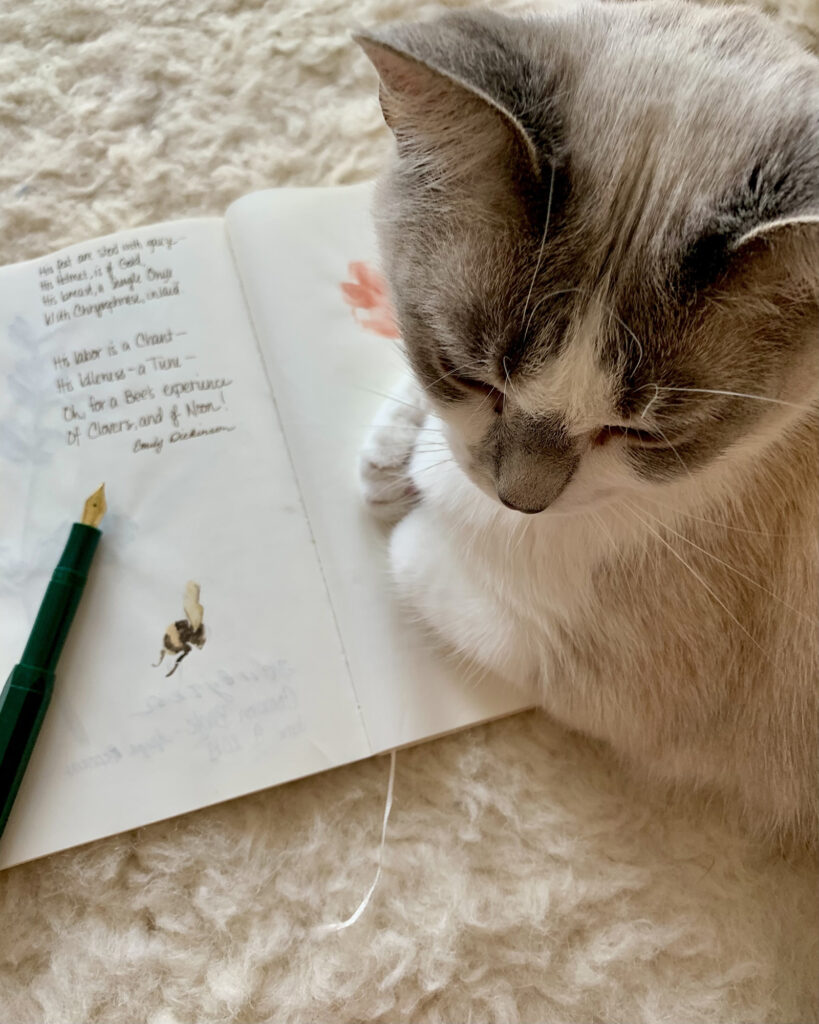 His feet are shod with gauze—
His Helmet, is of Gold,
His breast, a Single Onyx
With Chrysophrase, inlaid.
His Labor is a Chant—
His Idleness—a Tune—
Oh, for a Bee's experience
Of Clovers, and of Noon!
Emily Dickinson